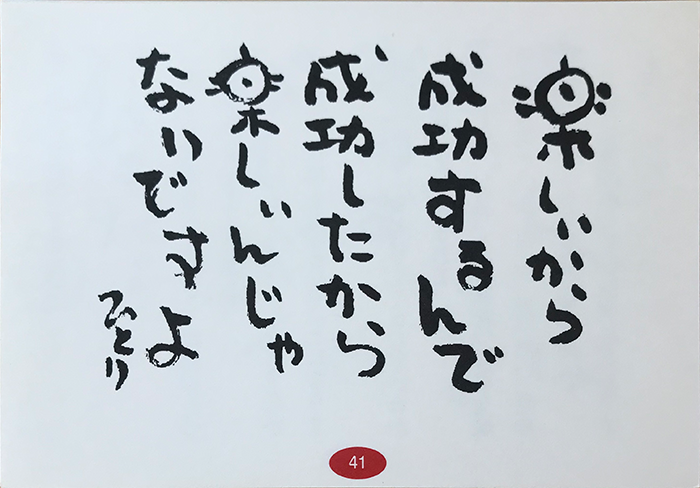 楽しいから
成功するんで
成功したから
楽しいんじゃ
ないですよ
ひとり
41